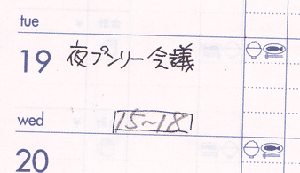 tue
19 夜プンリー会議
wed
15~18
20